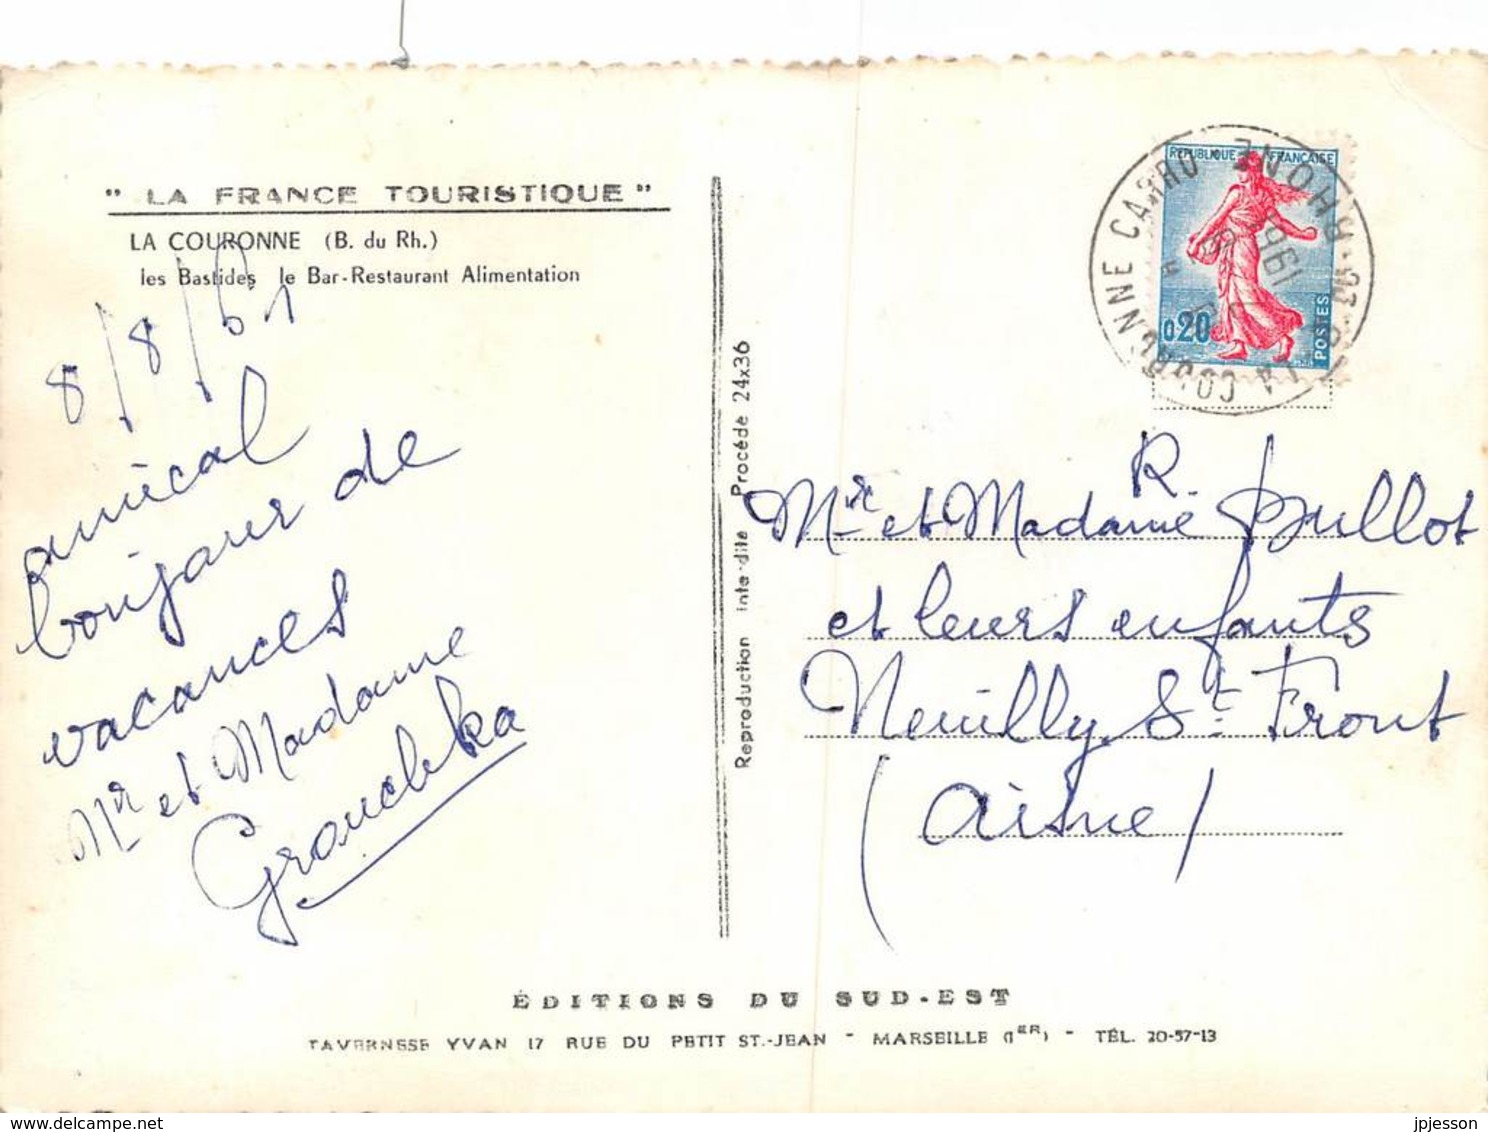 " LA FRANCE TOURISTIQUE "
LA COURONNE (B. du Rh.)
les Bastides le Bar-Restaurant Alimentation
8/8/61
amical
bonjour de
vacances
Mr et Madame
Grouchka
Reproduction interdite Procédé 24x36
REPUBLIQUE FRANÇAISE
0,20
POSTES
LA COURONNE CARRO
BH. DU RHONE
1961
R.
Mr et Madame Bullot
et leurs enfants
Neuilly St Front
(Aisne)
ÉDITIONS DU SUD-EST
TAVERNESE YVAN 17 RUE DU PETIT ST.-JEAN - MARSEILLE (1ER) - TÉL. 20-57-13
www.delcampe.net
jpjesson